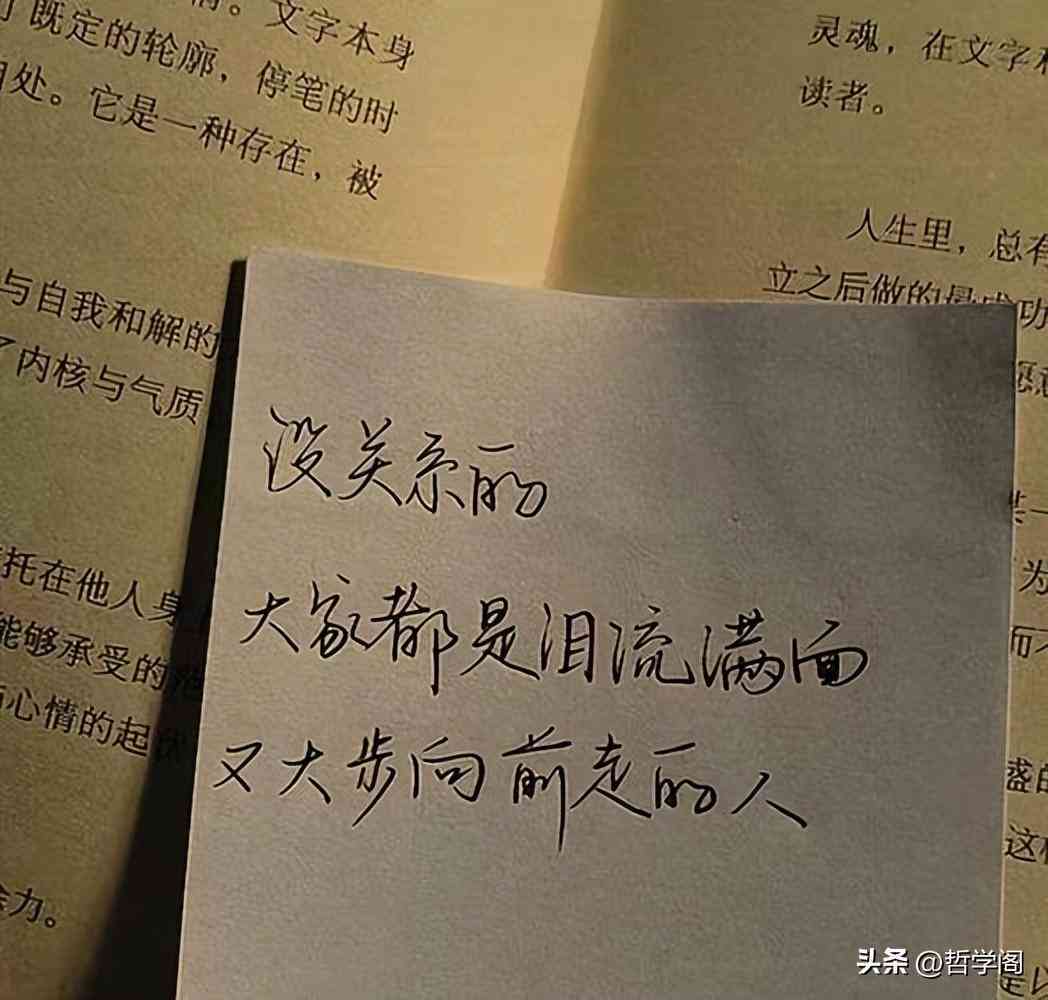 情。文字本身
了既定的轮廓，停笔的时
处。它是一种存在，被
与自我和解的
了内核与气质
托在他人身
能够承受的
心情的起伏
余力。
灵魂，在文字和
读者。
人生里，总有
立之后做的最成功
愿意
某一
为
而不
盛的
这样
是以
没关系的
大家都是泪流满面
又大步向前走的人
头条 @哲学阁